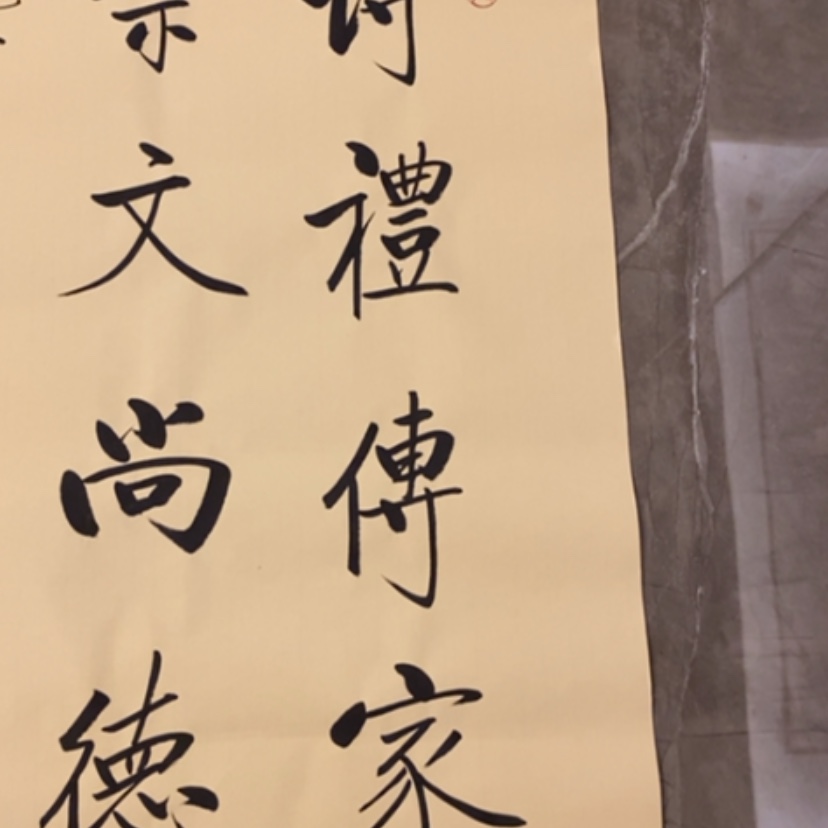 詩禮傳家
崇文尚德